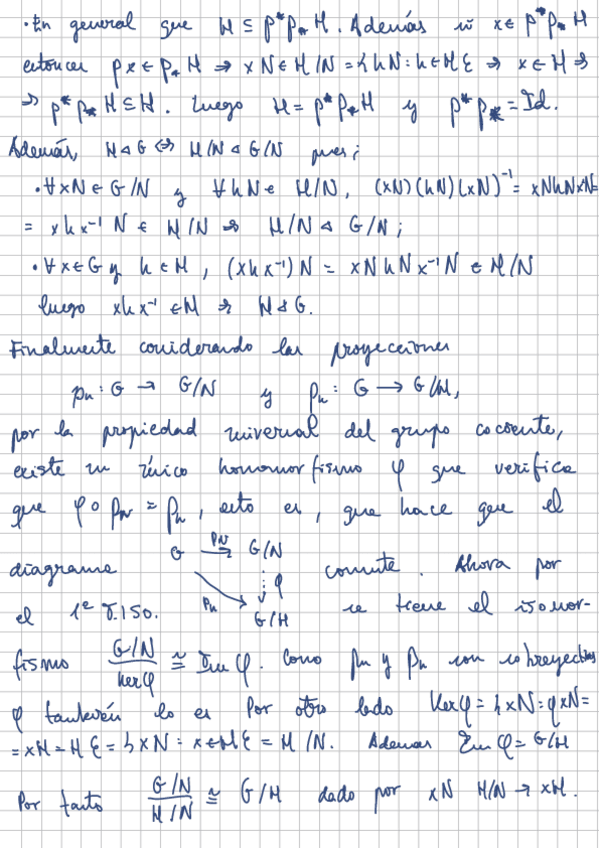 · En general que H ⊆ p*p⁎H. Además si x ∈ p*p⁎H
entonces px ∈ p⁎H ⇒ xN ∈ H/N = {hN : h ∈ H} ⇒ x ∈ H ⇒
⇒ p*p⁎H ⊆ H. Luego H = p*p⁎H y p*p⁎ = Id.
Además, H ◁ G ⇔ H/N ◁ G/N pues;
· ∀xN ∈ G/N y ∀hN ∈ H/N, (xN)(hN)(xN)⁻¹ = xNhNx⁻¹N =
= xhx⁻¹N ∈ H/N ⇒ H/N ◁ G/N;
· ∀x ∈ G y h ∈ H, (xhx⁻¹)N = xNhNx⁻¹N ∈ H/N
luego xhx⁻¹ ∈ H ⇒ H ◁ G.
Finalmente considerando las proyecciones
p_N : G → G/N y p_H : G → G/H,
por la propiedad universal del grupo cociente,
existe un único homomorfismo φ que verifica
que φ ∘ p_N = p_H, esto es, que hace que el
G →(p_N) G/N
diagrama φ conmute. Ahora por
el 1er T. ISO. p_H G/H se tiene el isomor-
fismo (G/N)/Kerφ ≅ Imφ. Como p_N y p_H son sobreyectivas
φ también lo es. Por otro lado Kerφ = {xN : φxN =
= xH = H} = {xN : x ∈ H} = H/N. Además Imφ = G/H
Por tanto (G/N)/(H/N) ≅ G/H dado por xN H/N → xH.